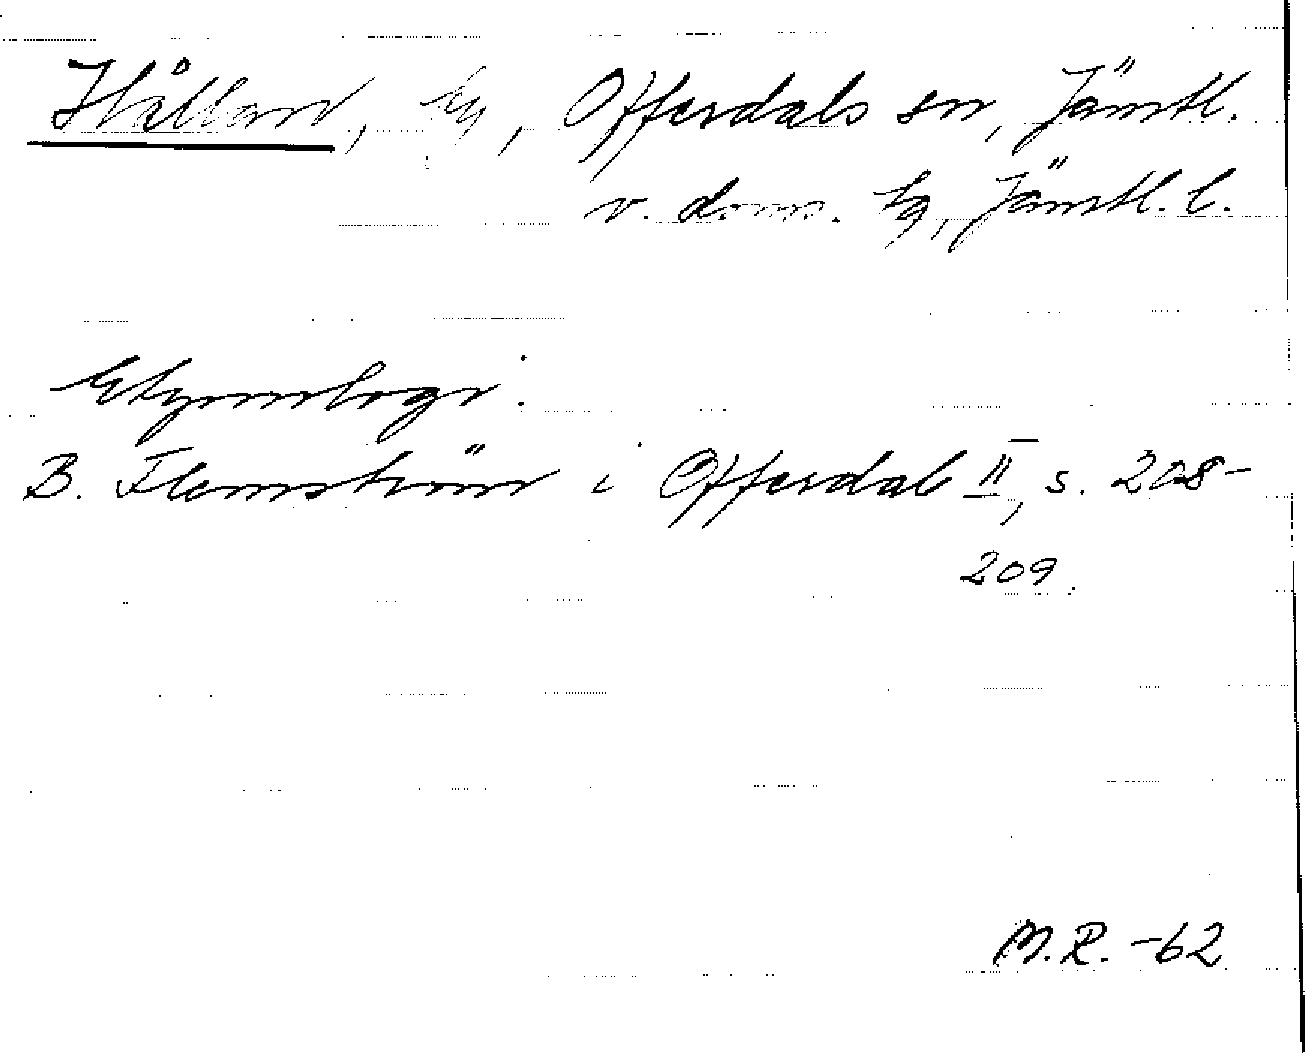 Hålland, by, Offerdals sn, Jämtl.
v. doms. tg, Jämtl. l.
Etymologi:
B. Flemström i Offerdal II, s. 208-
209.
M.R. -62